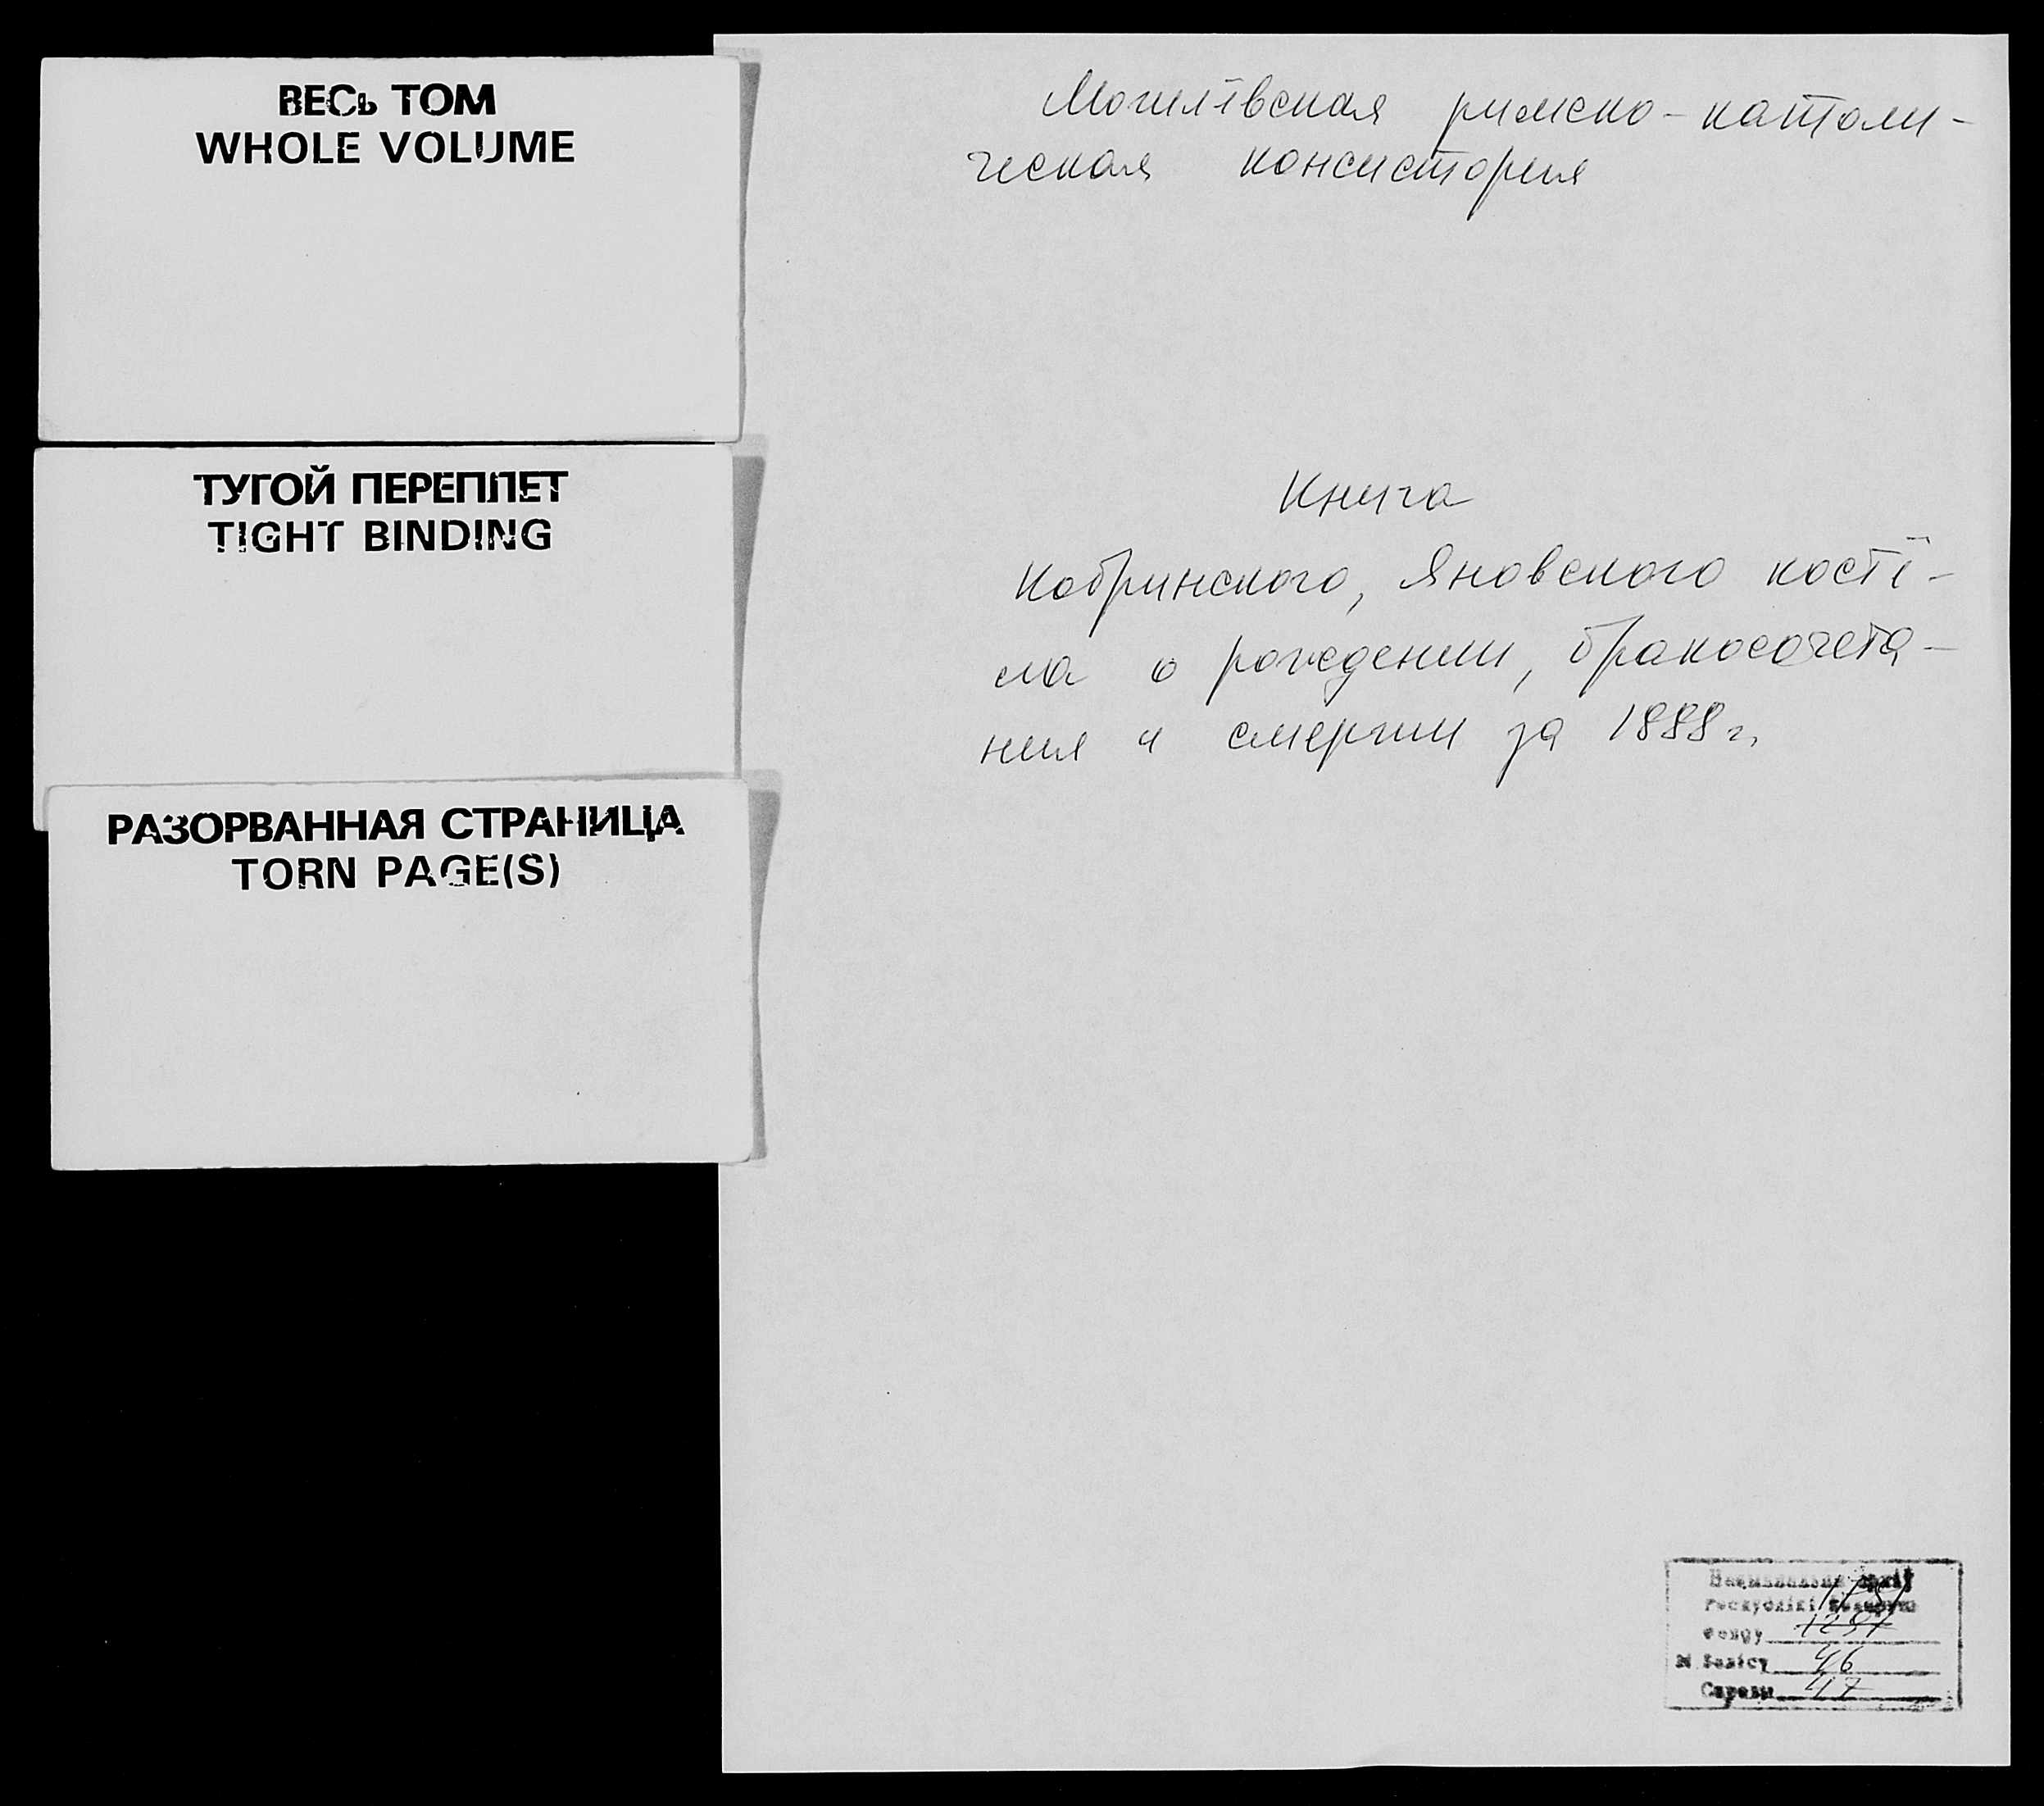 ВЕСЬ ТОМ
WHOLE VOLUME
ТУГОЙ ПЕРЕПЛЕТ
TIGHT BINDING
РАЗОРВАННАЯ СТРАНИЦА
TORN PAGE(S)
Могилёвская римско-католи-
ческая консистория
Книга
Кобринского, Яновского костё-
ла о рождении, бракосочета-
ния и смерти за 1888 г.
Фонду
N Вопісу 46
Справы 47